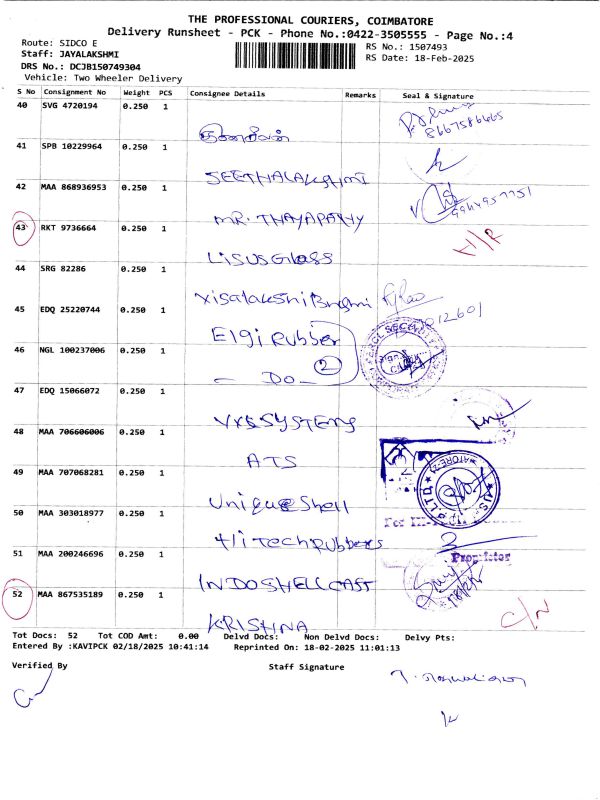 THE PROFESSIONAL COURIERS, COIMBATORE
Delivery Runsheet - PCK - Phone No.:0422-3505555 - Page No.:4
Route: SIDCO E
RS No.: 1507493
Staff: JAYALAKSHMI
RS Date: 18-Feb-2025
DRS No.: DCJB150749304
Vehicle: Two Wheeler Delivery
S No Consignment No Weight PCS Consignee Details Remarks Seal & Signature
40 SVG 4720194 0.250 1
8667586665
41 SPB 10229964 0.250 1 SEETHALAKSHMI
42 MAA 868936953 0.250 1 MR. THAYAPATHY
43 RKT 9736664 0.250 1 LISUS Glass
44 SRG 82286 0.250 1
45 EDQ 25220744 0.250 1 Elgi Rubber
46 NGL 100237006 0.250 1 - DO - 2
47 EDQ 15066072 0.250 1 SYSTEMS
48 MAA 706606006 0.250 1 ATS
49 MAA 707068281 0.250 1 Unique Shell
50 MAA 303018977 0.250 1 Hi Tech Rubbers
51 MAA 200246696 0.250 1 INDOSHELLCAST
Proprietor
52 MAA 867535189 0.250 1 KRISHNA C/N
Tot Docs: 52 Tot COD Amt: 0.00 Delvd Docs: Non Delvd Docs: Delvy Pts:
Entered By :KAVIPCK 02/18/2025 10:41:14 Reprinted On: 18-02-2025 11:01:13
Verified By Staff Signature